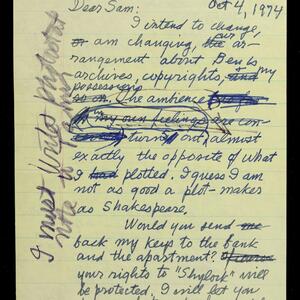 Oct 4, 1974
Dear Sam:
I intend to change,
or am changing, the our ar-
rangement about Ben's
archives, copyrights, and my
possessions
so on. The ambience
my own feelings are con-
turned out almost
exactly the opposite of what
I had plotted. I guess I am
not as good a plot-maker
as Shakespeare.
Would you send me
back my keys to the bank
and the apartment?
your rights to "Shylock" will
be protected. I will let you
I must